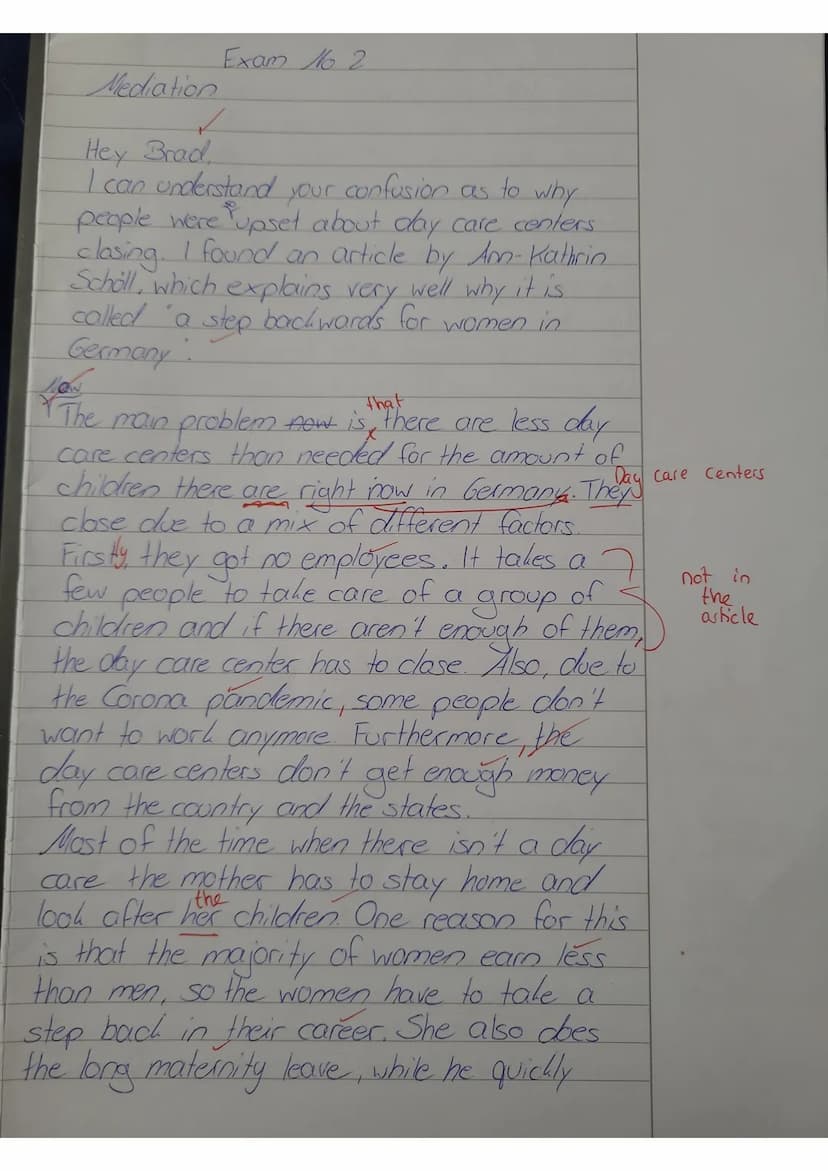 Exam No 2
Mediation
Hey Brad,
I can understand your confusion as to why
people were upset about day care centers
closing. I found an article by Ann-Kathrin
Schöll, which explains very well why it is
called "a step backwards for women in
Germany".
Now
that
The man problem now is, there are less day
care centers than needed for the amount of
Day care centers
children there are right now in Germany. They
close due to a mix of different factors.
Firstly, they got no employees. It takes a
not in
few people to take care of a group of
the
article
children and if there aren't enough of them,
the day care center has to close. Also, due to
the Corona pandemic, some people don't
want to work anymore. Furthermore, the
day care centers don't get enough money
from the country and the states.
Most of the time when there isn't a day
care the mother has to stay home and
the
look after her children. One reason for this
is that the majority of women earn less
than men, so the women have to take a
step back in their career. She also does
the long maternity leave, while he quickly